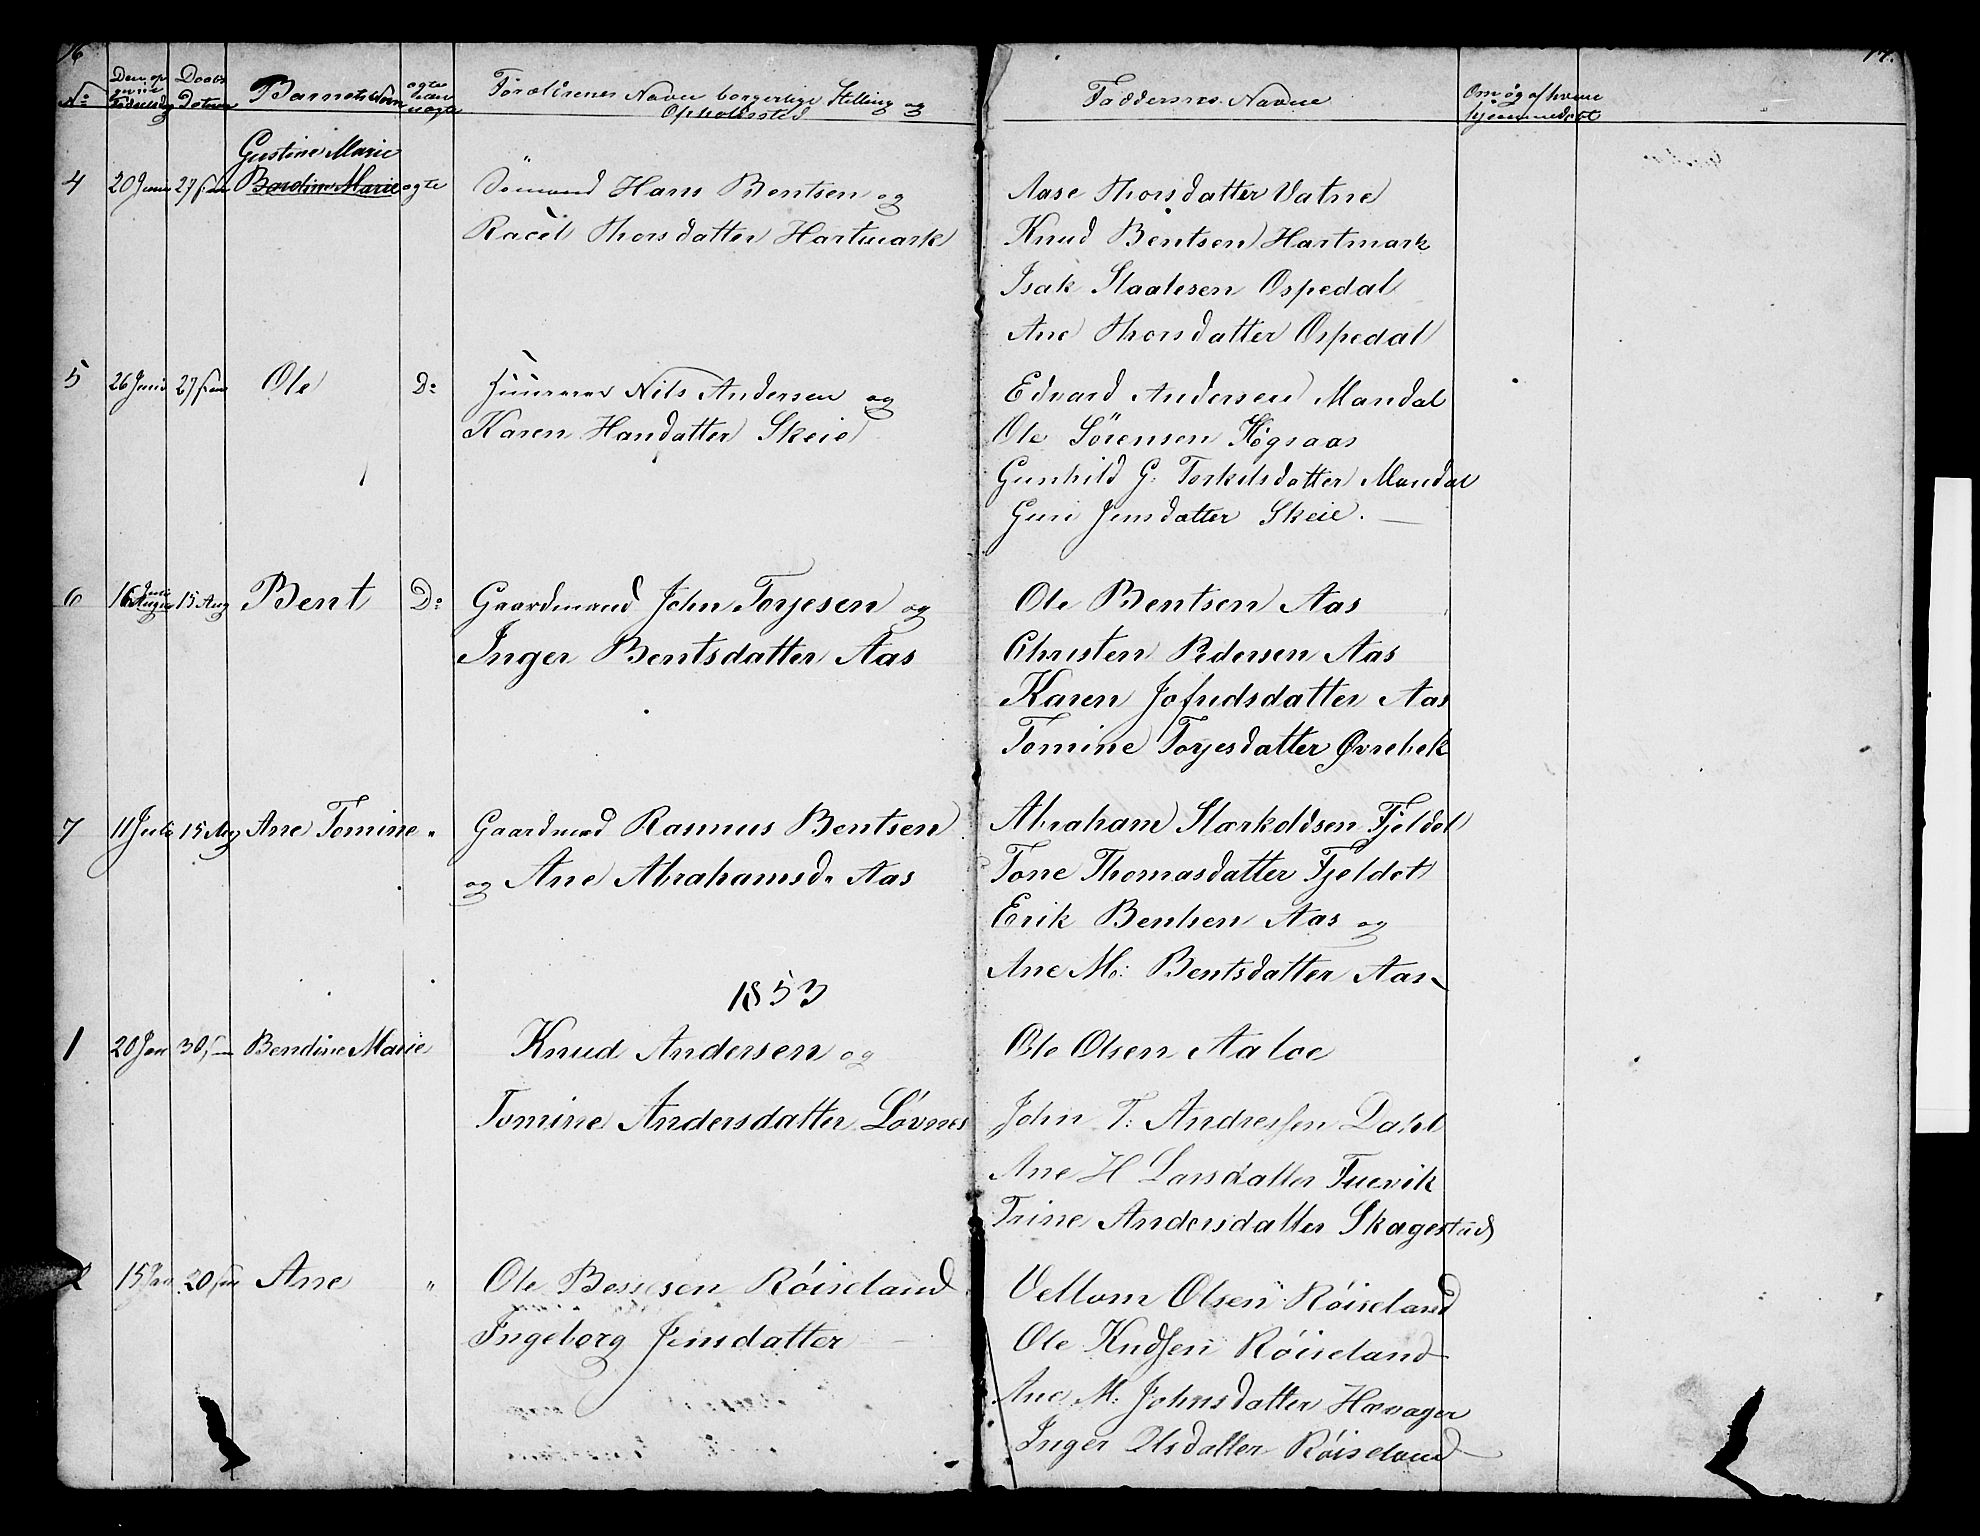 16
17.
No
Daabs
Datum
Barnets Navn
ægte
uægte
Forældrenes Navne borgerlige Stilling og
Opholdssted
Faddernes Navne
Om og af hvem
hjemmedøbt
Gustine Marie
4 20 Juni 27 Juni Bardine Marie ægte Sömand Hans Bentsen og
Racel Thorsdatter Hartmark
Aase Thorsdatter Vatne
Knud Bentsen Hartmark
Isak Staalesen Ospedal
Ane Thorsdatter Ospedal
5 26 Juni 27 Juni Ole Do Nils Andersen og
Karen Hansdatter Skeie
Edvard Andersen Mandal
Ole Sörensen Högsaas
Gunhild G: Torkilsdatter Mandal
Guri Jensdatter Skeie.
6 16 Juli 15 Aug Bent Do Gaardmand John Torjesen og
Inger Bentsdatter Aas
Ole Bentsen Aas
Christen Pedersen Aas
Karen Jofridsdatter Aas
Tomine Torjesdatter Øvrebek
7 11 Juli 15 Aug Ane Tomine " Gaardmad Rasmus Bentsen
og Ane Abrahamsd. Aas
Abraham Stærkoldsen Fjeldet
Tone Thomasdatter Fjeldet
Erik Bentsen Aas og
Ane M: Bentsdatter Aas
1853
1 20 Jan 30 Bendine Marie Knud Andersen og
Tomine Andersdatter Lövnes
Ole Olsen Aaloe
John T: Andressen Dahl
Ane H Larsdatter Tuevik
Trine Andersdatter Skagestad
2 15 Jan 20 Jan Ane " Ole Bessesen Röiseland
Ingeborg Jensdatter
Vellom Olsen Röiseland
Ole Knudsen Röiseland
Ane M: Johnsdatter Hævager
Inger Olsdatter Röiseland